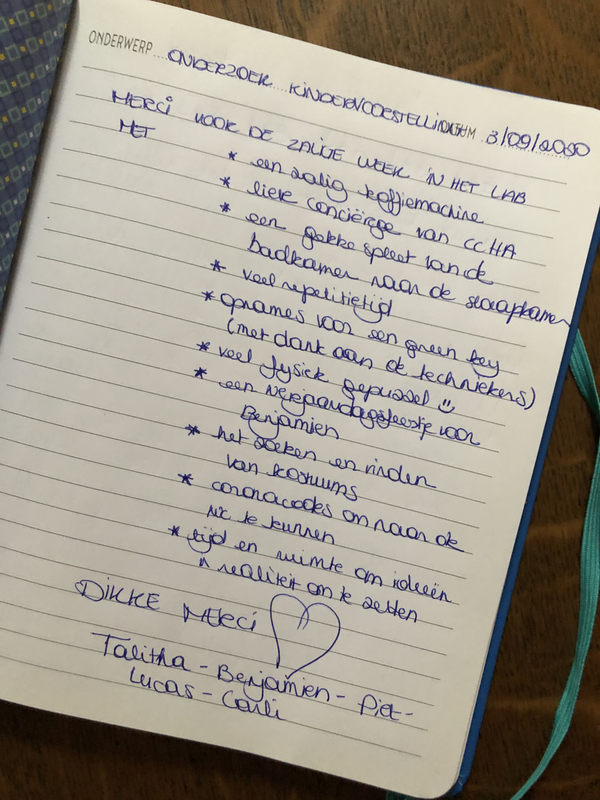 ONDERWERP ONDERZOEK KINDERVOORSTELLING DATUM 3/09/2020
MERCI VOOR DE ZALIGE WEEK IN HET LAB
MET
* een zalig koffiemachine
* lieve conciërge van CCHA
* een gekke spleet van de
badkamer naar de slaapkamer
* veel repetitietijd
* opnames voor een green key
(met dank aan de techniekers)
* veel fysiek gepuzzel ☺
* een verjaardagsfeestje voor
Benjamien
* het zoeken en vinden
van kostuums
* coronacodes om naar de
wc te kunnen
* tijd en ruimte om ideeën
n realiteit om te zetten
DIKKE MERCI ♡
Talitha - Benjamien - Piet -
Lucas - Carli